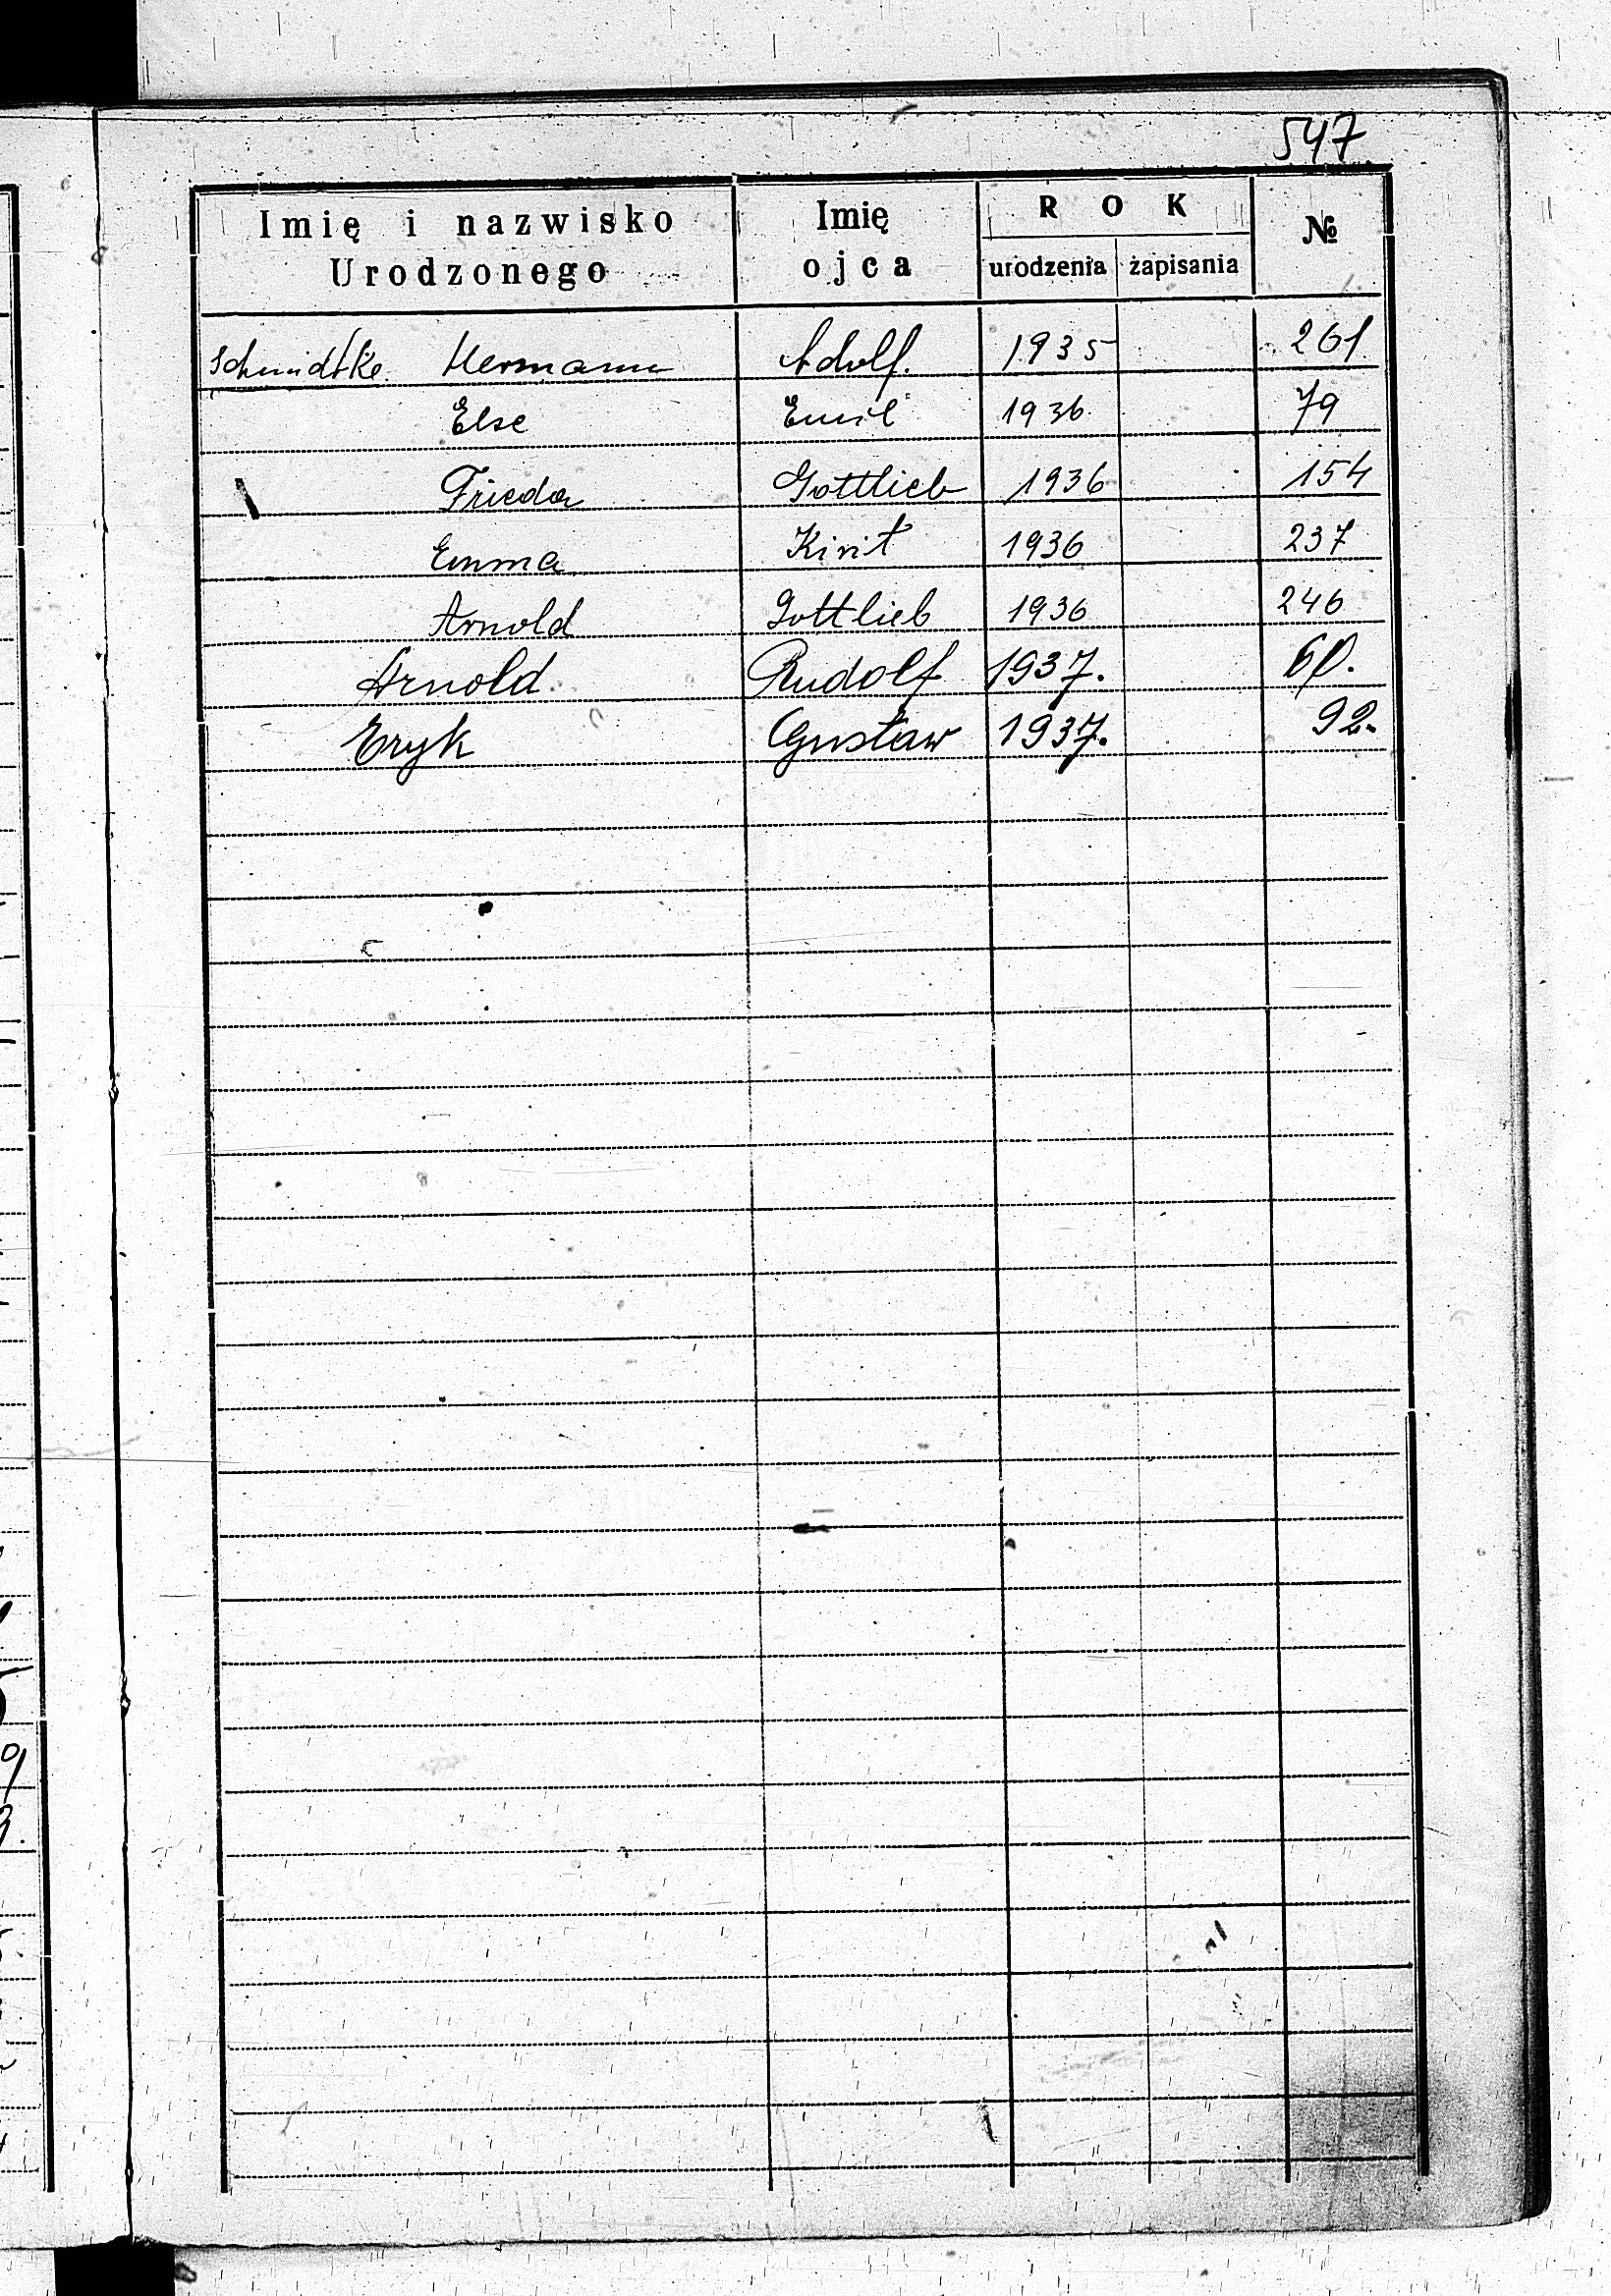 547
Imię i nazwisko Urodzonego Imię ojca ROK urodzenia zapisania №
Schmidtke Hermann Adolf. 1935 261
Else Emil 1936 79
Frieda Gottlieb 1936 154
Emma 1936 237
Arnold Gottlieb 1936 246
Arnold Rudolf 1937. 60.
Eryk Gustaw 1937. 92.